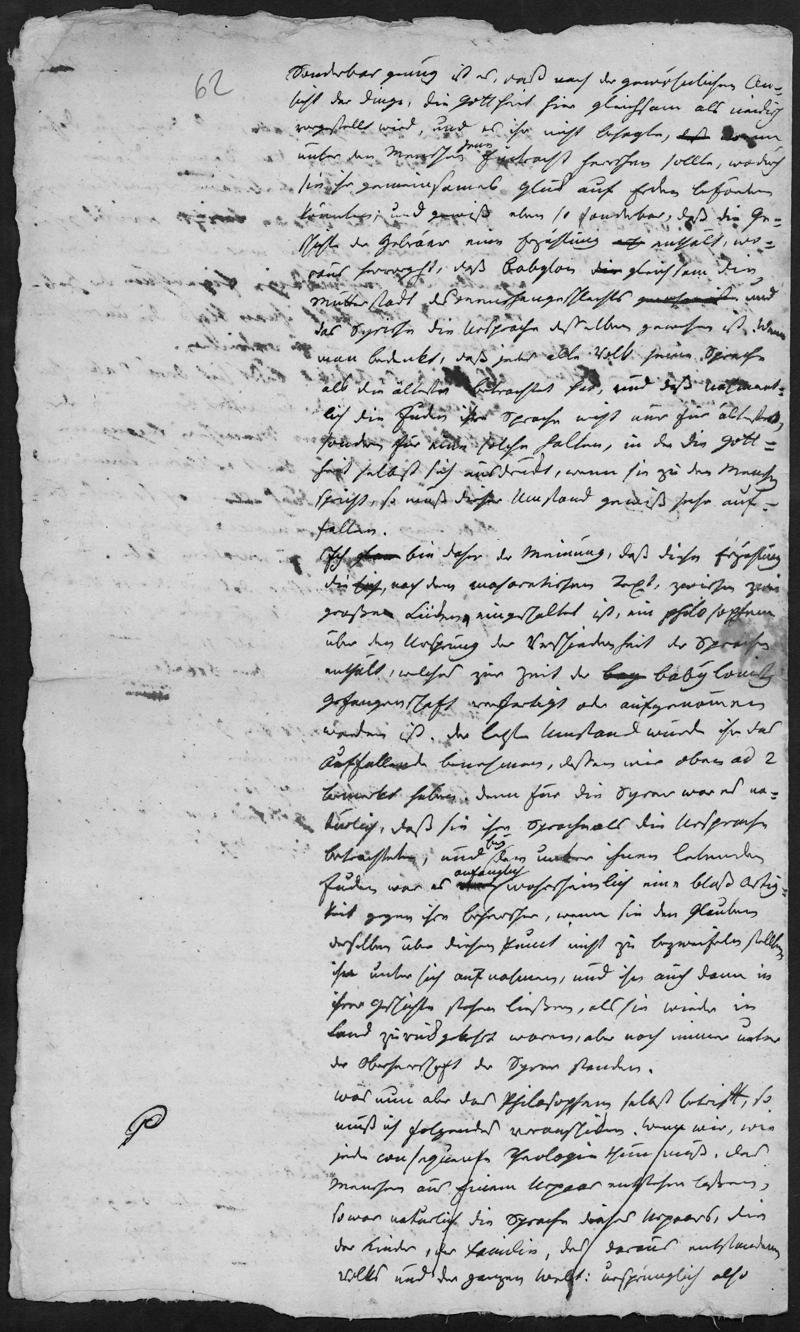 62
Sonderbar genug ist es, daß nach der gewöhnlichen An-
sicht der Dinge, die Gottheit hier gleichsam als neidisch
vorgestellt wird, und es ihr nicht behagte, wenn
unter den Menschen jene Eintracht herrschen sollte, wodurch
sie ihr gemeinsames Glück auf Erden befördern
könnten; und gewiß eben so sonderbar, daß die Ge-
schichte der Hebräer eine Erzählung enthält, wo-
raus hervorgeht, daß Babylon die gleichsam die
Mutterstadt des Menschengeschlechts und
das Syrische die Ursprache desselben gewesen ist. Wenn
man bedenkt, daß jedes alte Volk seine Sprache
als die älteste betrachtet hat, und daß nament-
lich die Juden ihre Sprache nicht nur für älteste,
sondern für eine solche halten, in der die Gott-
heit selbst sich ausdrückt, wenn sie zu den Menschen
spricht, so muß dieser Umstand gewiß sehr auf-
fallen.
Ich bin daher der Meinung, daß diese Erzählung
die, nach dem masoretischen Text, zwischen zwei
großen Lücken eingeschaltet ist, ein Philosophem
über den Ursprung der Verschiedenheit der Sprachen
enthält, welches zur Zeit der babylonischen
Gefangenschaft verfertigt oder aufgenommen
worden ist. Der letzte Umstand würde ihr das
Auffallende benehmen, dessen wir oben ad 2
bemerkt haben. Denn für die Syrer war es na-
türlich, daß sie ihre Sprache als die Ursprache
betrachteten, und bei den unter ihnen lebenden
Juden war es anfänglich wahrscheinlich eine bloß Artig-
keit gegen ihre Beherrscher, wenn sie den Glauben
derselben über diesen Punct nicht zu bezweifeln
ihn unter sich aufnahmen, und ihn auch dann in
ihrer Geschichte stehen ließen, als sie wieder in
Land zurückgekehrt waren, aber noch immer unter
der Oberherrschaft der Syrer standen.
Was nun aber das Philosophem selbst betrifft, so
muß ich folgendes vorausschicken. Wenn wir, wie
jede consequente Theologie thun muß, das
Menschen aus Einem Urpaar entstehen lassen,
so war natürlich die Sprache dieses Urpaars, die
der Kinder, der Familie, des daraus entstandenen
Volks und der ganzen Welt: ursprünglich also